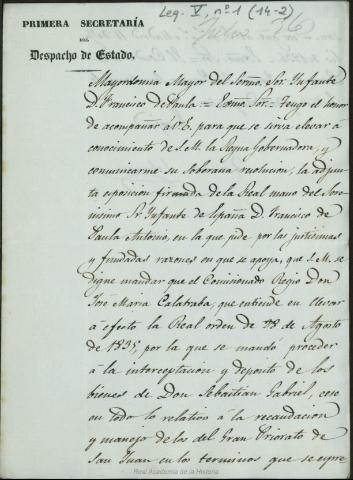 Leg. V, nº 1 (14-2)
PRIMERA SECRETARÍA
DEL
Despacho de Estado.
Mayordomia Mayor del Sermo. Sor. Ynfante
D. Francisco de Paula = Exmo. Sor. = Tengo el honor
de acompañar á V.E. para que se sirva elevar á
conocimiento de S.M. la Reyna Gobernadora, y
comunicarme su Soberana resolucion, la adjun-
ta esposicion firmada de la Real mano del Sere-
nisimo Sr. Ynfante de España D. Francisco de
Paula Antonio, en la que pide por las justisimas
y fundadas razones en que se apoya, que S.M. se
digne mandar que el Comisionado Regio Don
José Maria Calatraba, que entiende en llevar
á efecto la Real orden de 28 de Agosto
de 1835, por la que se mandó proceder
á la interceptacion y deposito de los
bienes de Don Sebastian Gabriel, cese
en todo lo relativo á la recaudacion
y manejo de los del Gran Priorato de
San Juan en los terminos que se espre
Real Academia de la Historia